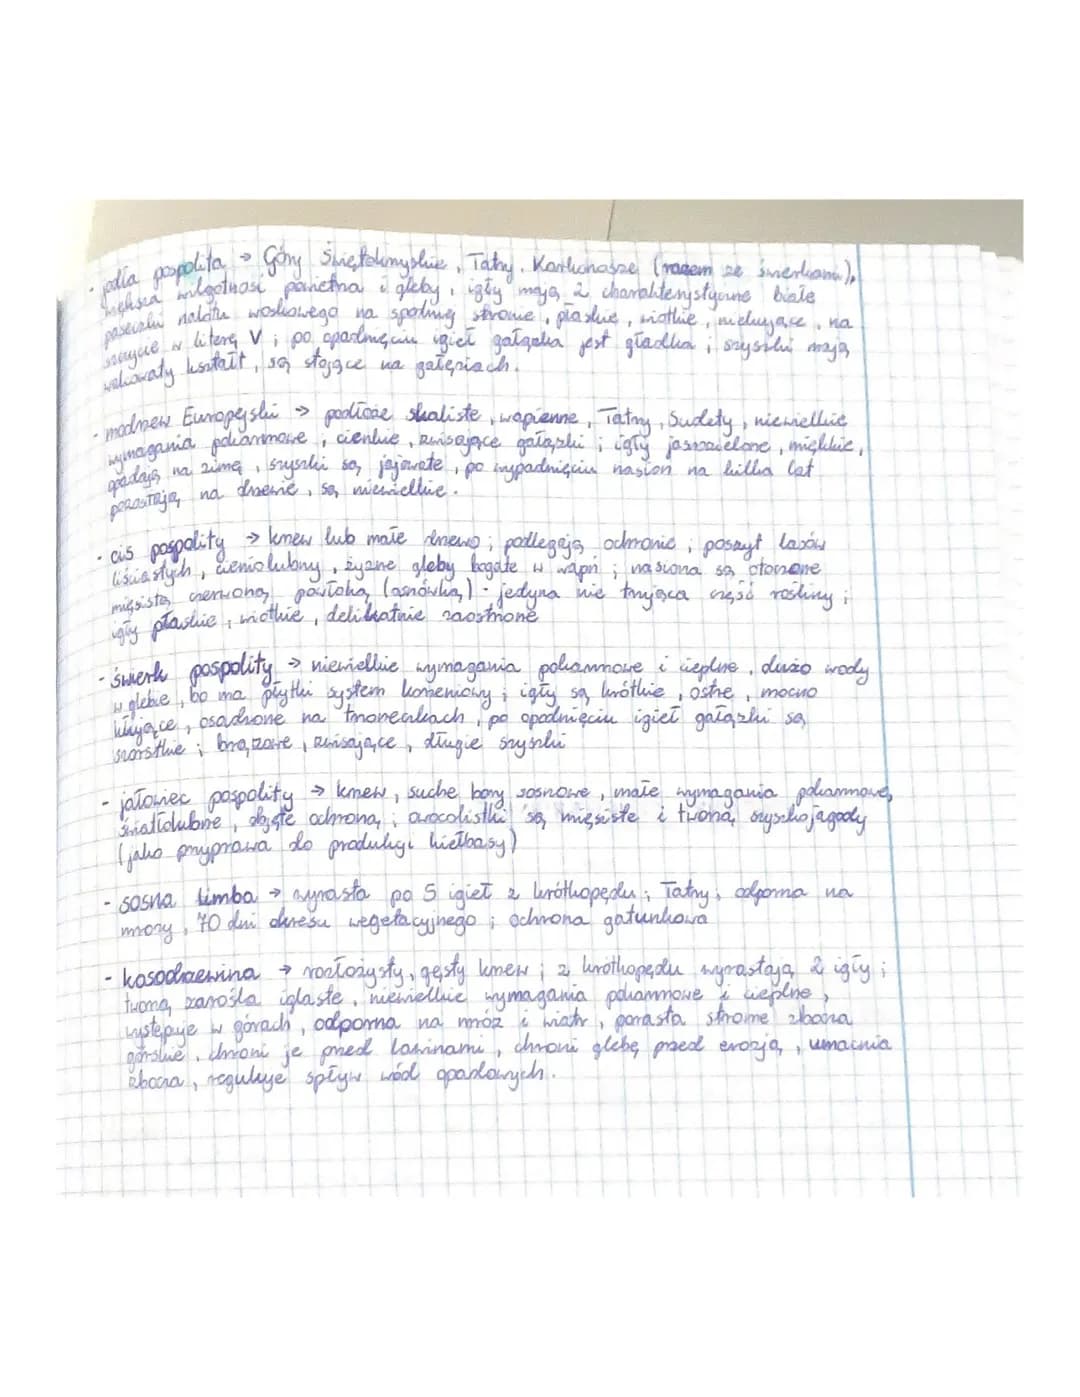 - jodła pospolita → Góry Świętokrzyskie, Tatry, Karkonosze (razem ze świerkami),
większa wilgotność powietrza i gleby, igły mają 2 charakterystyczne białe
paseczki nalotu woskowego na spodniej stronie, płaskie, wiotkie, niekłujące, na
szczycie w literę V ; po opadnięciu igieł gałązka jest gładka ; szyszki mają
walcowaty kształt, są stojące na gałęziach.
- modrzew Europejski → podłoże skaliste, wapienne, Tatry, Sudety, niewielkie
wymagania pokarmowe ; cienkie, zwisające gałązki ; igły jasnozielone, miękkie,
opadają na zimę, szyszki są jajowate, po wypadnięciu nasion na kilka lat
pozostają na drzewie, są niewielkie.
- cis pospolity → krzew lub małe drzewo ; podlegają ochronie ; poszyt lasów
liściastych, cieniolubny, żyzne gleby bogate w wapń ; nasiona są otoczone
mięsistą czerwoną powłoką (osnówką) - jedyna nie trująca część rośliny ;
igły płaskie, wiotkie, delikatnie zaostrzone
- świerk pospolity → niewielkie wymagania pokarmowe i cieplne, dużo wody
w glebie, bo ma płytki system korzeniowy ; igły są krótkie, ostre, mocno
kłujące, osadzone na trzoneczkach, po opadnięciu igieł gałązki są
szorstkie ; brązowe, zwisające, długie szyszki
- jałowiec pospolity → krzew, suche bory sosnowe, małe wymagania pokarmowe,
światłolubne, objęte ochroną ; owocolistki są mięsiste i tworzą szyszkojagody
(jako przyprawa do produkcji kiełbasy)
- sosna limba → wyrasta po 5 igieł z krótkopędu ; Tatry, odporna na
mrozy, 70 dni okresu wegetacyjnego ; ochrona gatunkowa
- kosodrzewina → rozłożysty, gęsty krzew ; z krótkopędu wyrastają 2 igły ;
tworzą zarośla iglaste, niewielkie wymagania pokarmowe i cieplne,
występuje w górach, odporna na mróz i wiatr, porasta strome zbocza
górskie, chroni je przed lawinami, chroni glebę przed erozją, umacnia
zbocza, reguluje spływ wód opadowych.